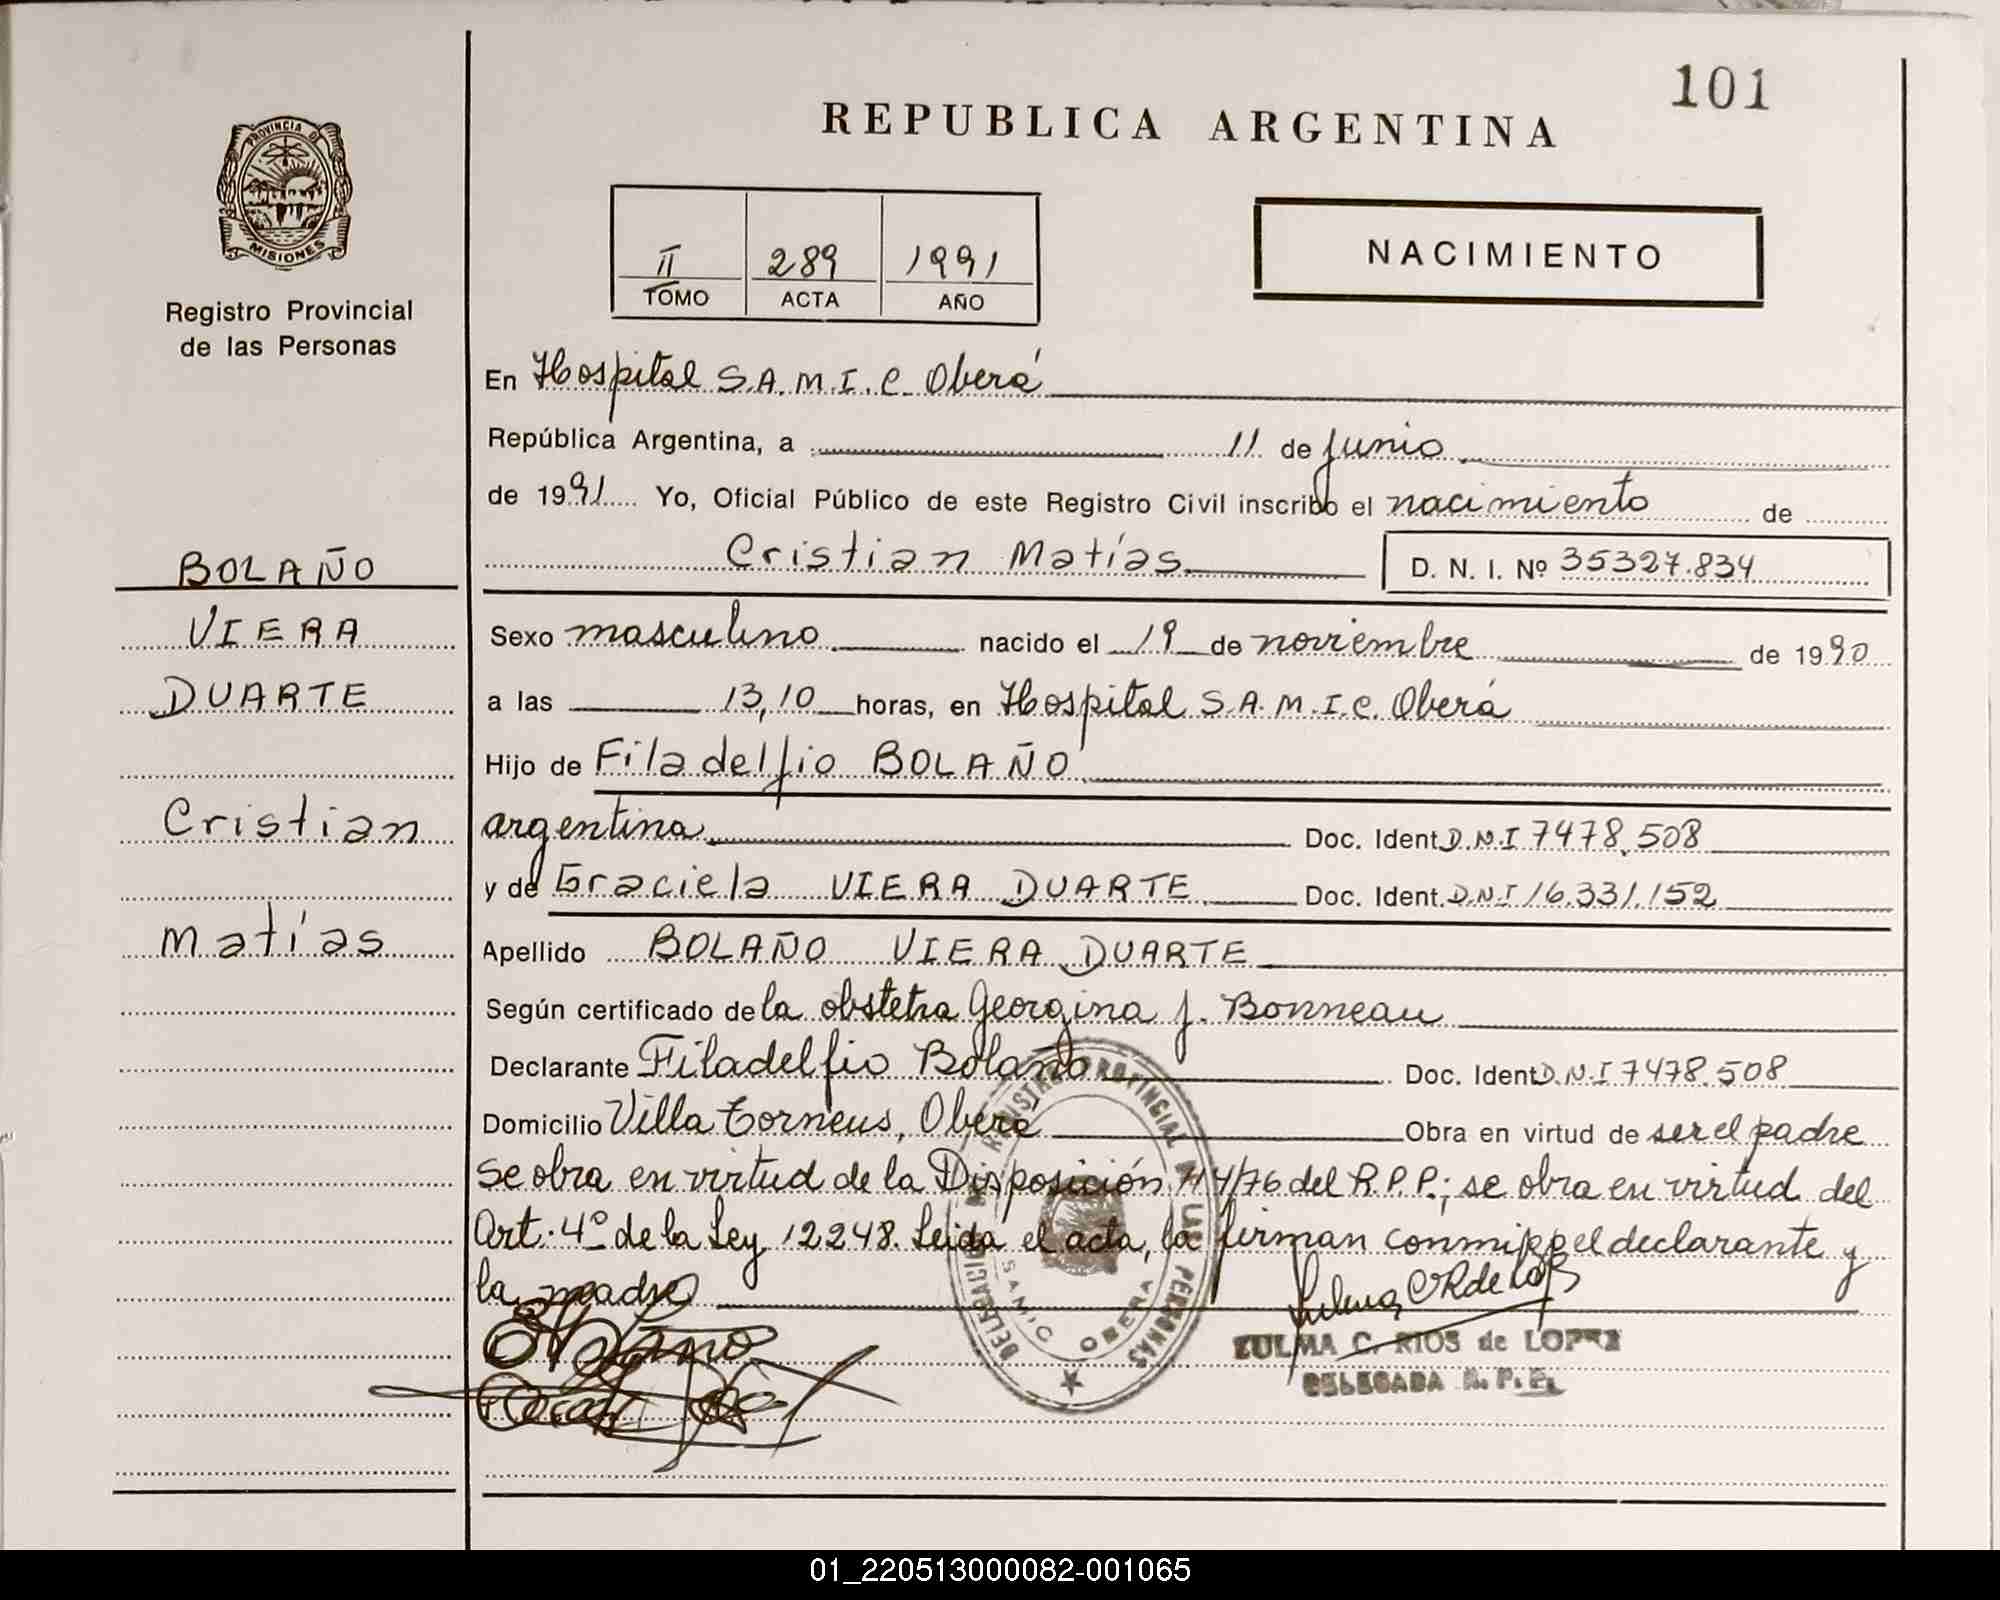 101
REPUBLICA ARGENTINA
PROVINCIA DE
MISIONES
Registro Provincial
de las Personas
II 289 1991
TOMO ACTA AÑO
NACIMIENTO
En Hospital S.A.M.I.C. Oberá
República Argentina, a 11 de junio
de 1991 Yo, Oficial Público de este Registro Civil inscribo el nacimiento de
Cristian Matías D. N. I. Nº 35327.834
BOLAÑO
VIERA
DUARTE
Cristian
Matías
Sexo masculino nacido el 19 de noviembre de 1990
a las 13,10 horas, en Hospital S.A.M.I.C. Oberá
Hijo de Filadelfio BOLAÑO
argentina Doc. Ident. D.N.I 7478.508
y de Graciela VIERA DUARTE Doc. Ident. D.N.I 16.331.152
Apellido BOLAÑO VIERA DUARTE
Según certificado de la obstetra Georgina J. Bonneau
Declarante Filadelfio Bolaño Doc. Ident. D.N.I 7478.508
Domicilio Villa Torneus, Oberá Obra en virtud de ser el padre
se obra en virtud de la Disposición 44/76 del R.P.P.; se obra en virtud del
Art. 4º de la Ley 12248. Leida el acta, la firman conmigo el declarante y
la madre
REGISTRO PROVINCIAL DE LAS PERSONAS
DELEGACION
SAMIC OBERA
ZULMA C. RIOS de LOPEZ
DELEGADA R. P. P.
01_220513000082-001065